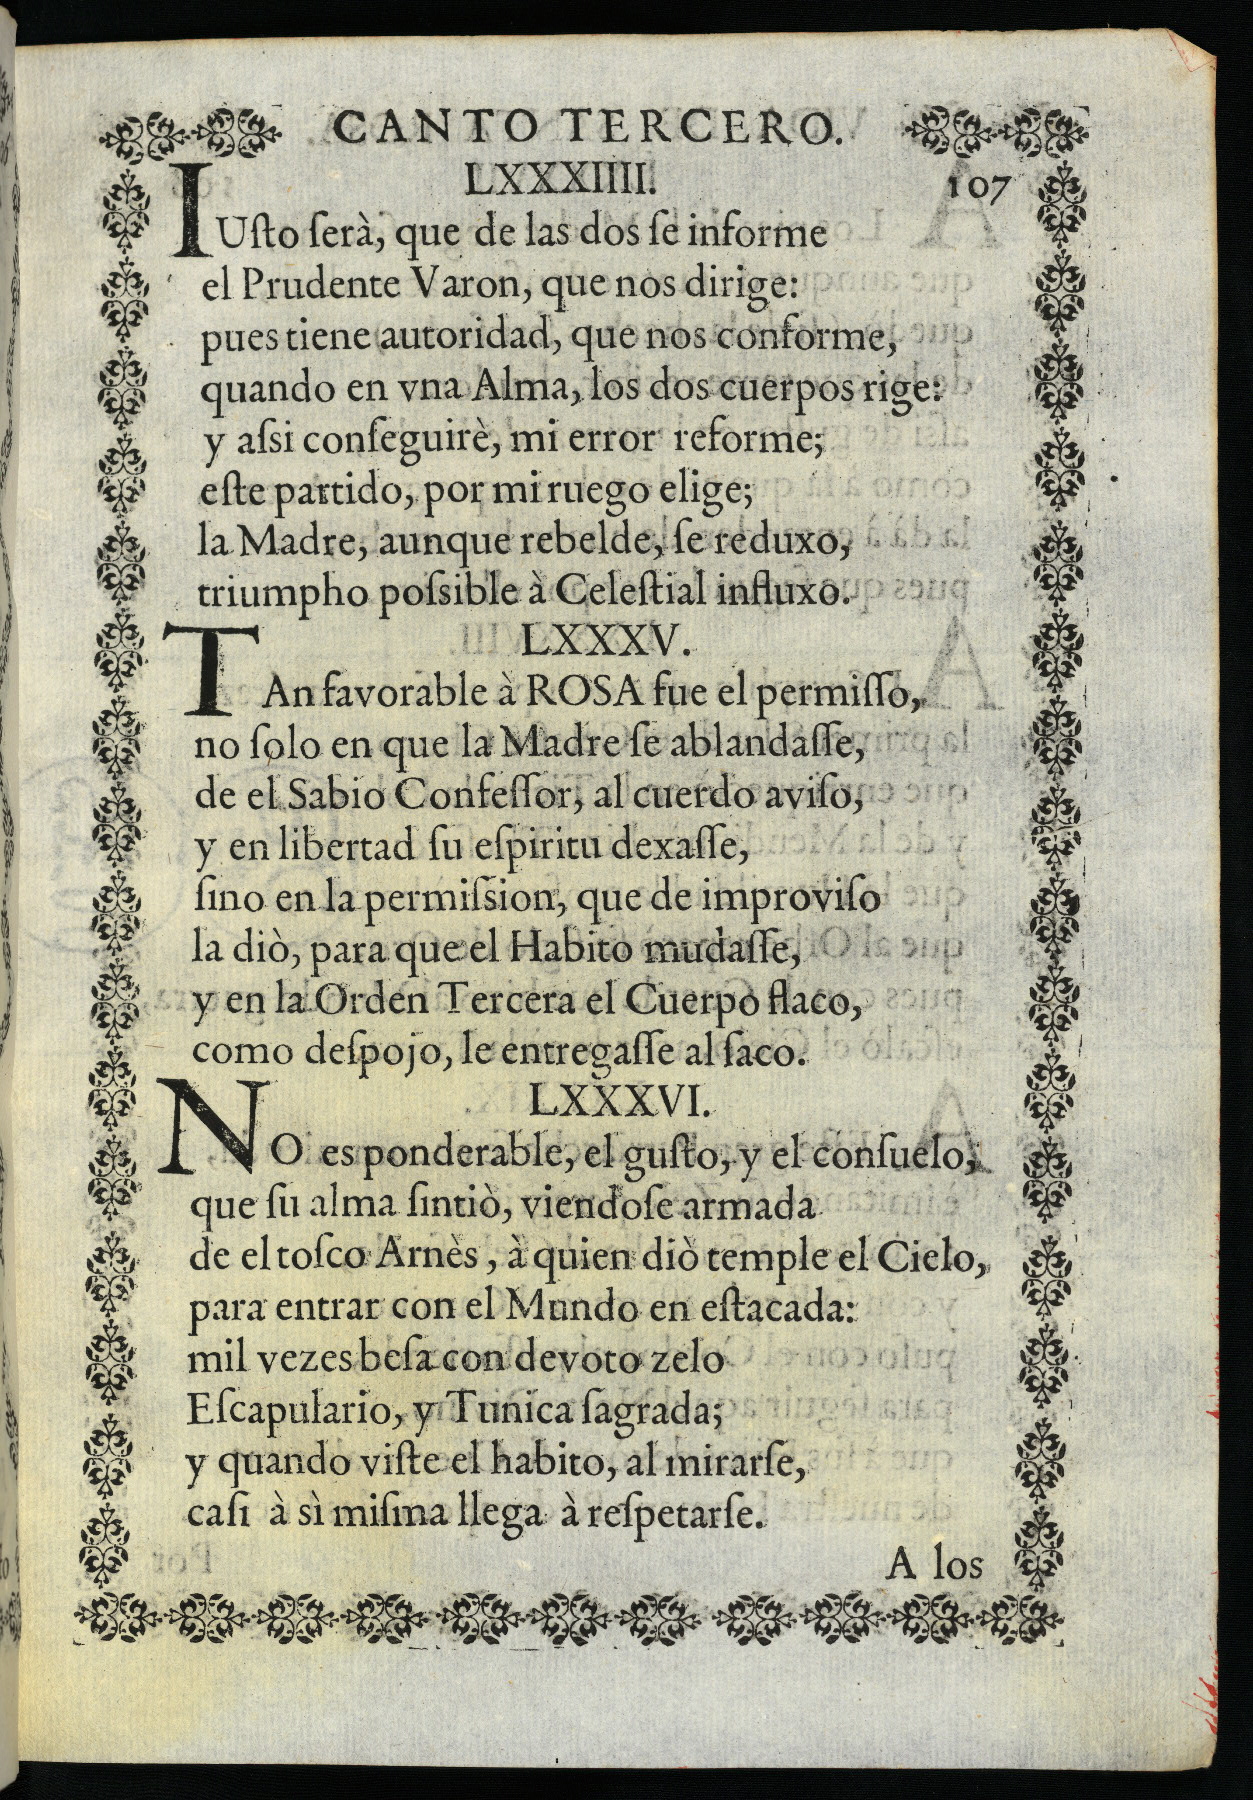 CANTO TERCERO.
LXXXIIII.
107
IUſto ſerà, que de las dos ſe informe
el Prudente Varon, que nos dirige:
pues tiene autoridad, que nos conforme,
quando en vna Alma, los dos cuerpos rige:
y aſsi conſeguirè, mi error reforme;
eſte partido, por mi ruego elige;
la Madre, aunque rebelde, ſe reduxo,
triumpho poſsible à Celeſtial influxo.
LXXXV.
TAn favorable à ROSA fue el permiſſo,
no ſolo en que la Madre ſe ablandaſſe,
de el Sabio Confeſſor, al cuerdo aviſo,
y en libertad ſu eſpiritu dexaſſe,
ſino en la permiſsion, que de improviſo
la diò, para que el Habito mudaſſe,
y en la Orden Tercera el Cuerpo flaco,
como deſpojo, le entregaſſe al ſaco.
LXXXVI.
NO es ponderable, el guſto, y el conſuelo,
que ſu alma ſintiò, viendoſe armada
de el toſco Arnès, à quien diò temple el Cielo,
para entrar con el Mundo en eſtacada:
mil vezes beſa con devoto zelo
Eſcapulario, y Tunica ſagrada;
y quando viſte el habito, al mirarſe,
caſi à sì miſma llega à reſpetarſe.
A los